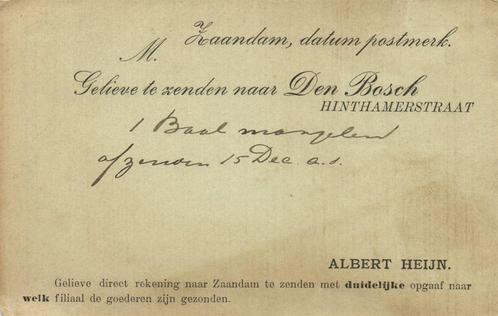 Zaandam, datum postmerk.
M.
Gelieve te zenden naar Den Bosch
HINTHAMERSTRAAT
1 Baal mangelen
afzenden 15 Dec. a.s.
ALBERT HEIJN.
Gelieve direct rekening naar Zaandam te zenden met duidelijke opgaaf naar
welk filiaal de goederen zijn gezonden.